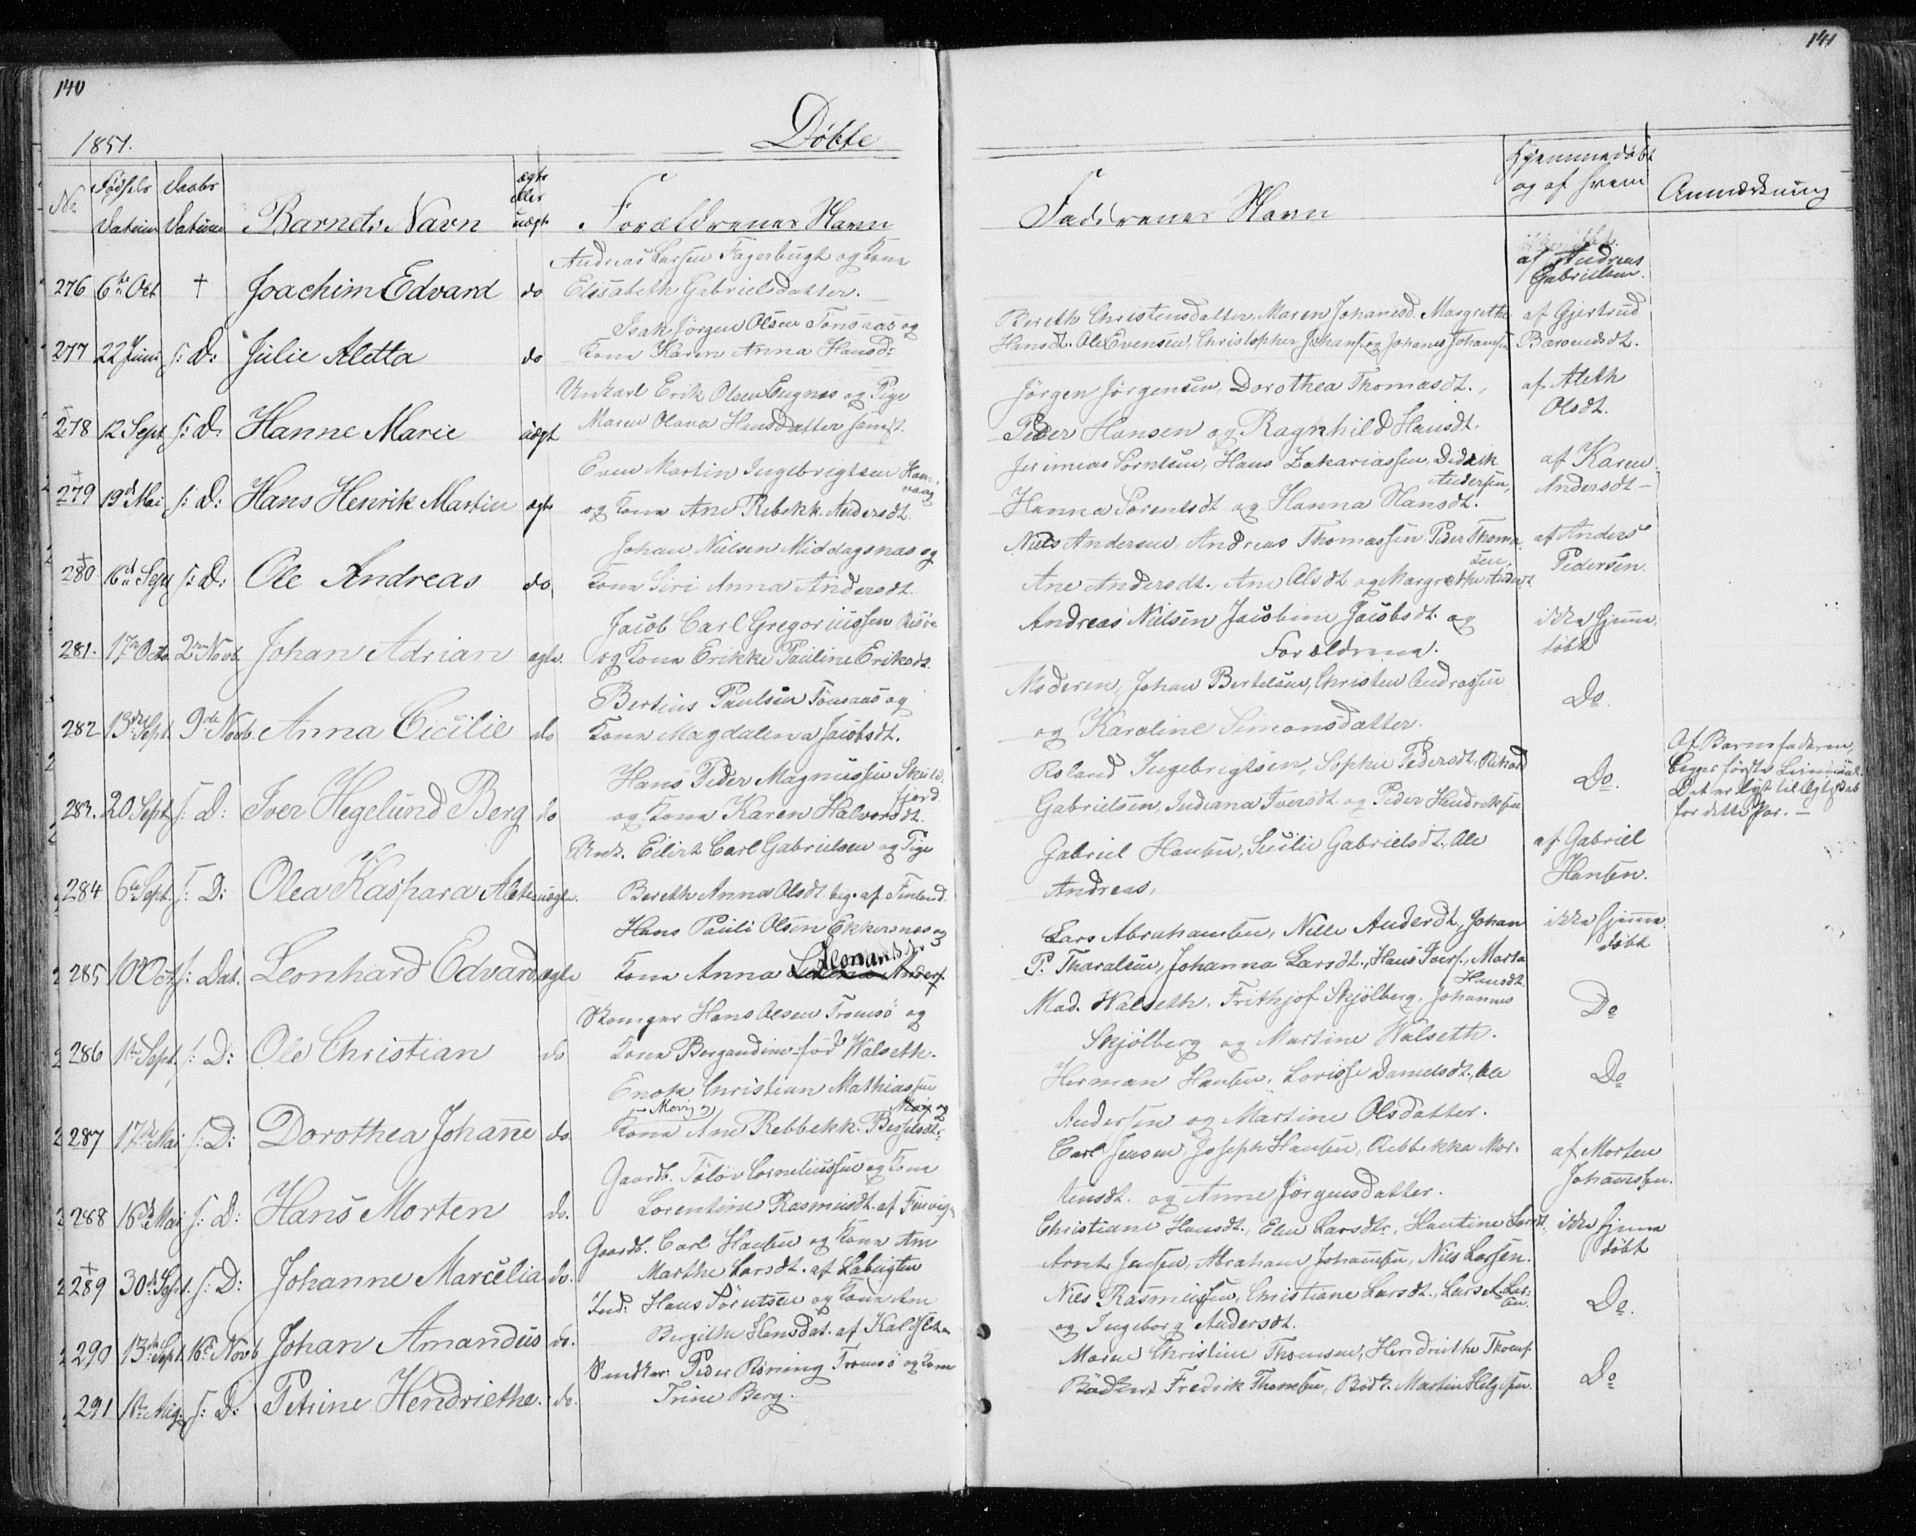 140
141
1851.
Døbte
No
Fødsels Datum
Daabs Datum
Barnets Navn
ægte eller uægte
Forældrenes Navn
Faddrenes Navn
Hjemmedøbt og af hvem
Anmærkning
276 6te Oct † Joachim Edvard do
Andreas Larsen Fagerbugt og Kone
Elisabeth Gabrielsdatter.
af Andreas
Gabrielsen.
277 22 Juni s: D: Julie Aletta do
Isak Jørgen Olsen Tønsaas og
Kone Karen Anna Hansd:
Bereth Christensdatter, Maren Johanesd, Margrethe
Hansdt. Ole Evensen, Christopher Johans og Johanes Johansen
af Gjertrud
Baroendsdt.
278 12 Sept s: D: Hanne Marie uægt
Unkarl Erik Olsen Lugnes og Pige
Maren Olava Hansdatter
Jørgen Jørgensen, Dorothea Thomasdt.,
Peder Hansen og Ragnhild Hansdt.
af Aleth
Olsdt.
279 19d Mai s: D: Hans Henrik Martin ægte
Even Martin Ingebrigtsen Hamvaag
og Kone Ane Rebekk. Andersdt.
Jerimias Sorntsen, Hans Zakariassen, Didrik
Andersen,
Hanna Sorentsdt og Hanna Hansdt.
af Karen
Andersdt
280 16d Sept s: D: Ole Andreas do.
Johan Nielsen Middagsnæs og
Kone Siri Anna Andersdt.
Niels Andersen, Andreas Thomassen Peder Thomasen,
Ane Andersdt. Ane Olsdt og Margrethe Andersdt
af Anders
Pedersen.
281. 17de Octo. 2den Novb. Johan Adrian ægte.
Jacob Carl Gregoriussen
og Kone Erikke Pauline Eriksdt.
Andreas Nielsen Jacobine Jacobsdt. og
Forældrene.
ikke hjemme
døbt
282 13de Sept. 9de Novb. Anna Cicilie do
Bertius Paulsen Tønsaas og
Kone Magdalena Jacobsdt.
Moderen, Johan Bertelsen, Christen Andreasen
og Karoline Simonsdatter.
Do.
283. 20 Sept s: D: Iver Hegelund Berg do
Hans Peder Magnussen Skulsfjord
og Kone Karen Halvorsdt.
Roland Ingebrigtsen, Sophie Pedersdt, Rikard
Gabrielsen, Indiana Iversdt. og Peder Hendriksen
Do.
Af Barnefaderen,
begges første Leiermaal.
Det er lyst til Ægteskab
for dette Par. —
284 6te Sept. s: D: Olea Kaspara Alete uægte.
Unk. Eilert Carl Gabrielsen og Pige
Bereth Anna Olsdt. beg. af Finland.
Gabriel Hansen, Sicilie Gabrielsdt, Ole
Andreas,
af Gabriel
Hansen.
285 10 Oct s: Dat. Leonhard Edvard ægte
Hans Pauli Olsen Ekkersnes og
Kone Anna
Lars Abrahamsen, Nille Andersdt, Johan
P. Tharalsen, Johanna Larsdt., Hans Ivers., Marta
Hansdt.
ikke hjemme
døbt
286 1te Sept. s: D: Ole Christian do
Skomager Hans Olsen Tromsø og
Kone Bergandine fød Walseth.
Mad. Walseth, Frithjof Skjølberg, Johannes
Skjølberg og Martine Walseth.
Do
287 17de Mai s: D: Dorothea Johanne do.
Enok Christian Mathiassen
Movig og
Kone Ane Rebbekk. Besselsdt.
Herman Hansen, Lovisse Danielsdt., Ole
Andersen og Martine Olsdatter.
Do
288 16de Mai s: D: Hans Morten do.
Gaardb. Tolov Corneliussen og Kone
Lorentine Rasmusdt. af Finvigen
Carl Jensen, Joseph Hansen, Rebbekka Mortensdt. og Anne Jørgensdatter.
af Morten
Johansen.
289 30de Sept. s: D: Johanne Marcelia do.
Gaardb. Carl Hansen og Kone Ane
Marthe Larsdt. af
Christiane Hansdt., Elen Larsdtr., Hantine Larsdt.
Arnt Jensen, Abraham Johansen, Niels Larsen.
ikke hjemme
døbt
290 13de Sept. 16de Novb. Johan Amandus do.
Ind: Hans Sørntsen og Kone Ane
Bergithe Hansdat. af Kaldsletten
Niels Rasmussen, Christiane Larsdt., Lars A. Larsen
og Ingeborg Andersdt.
Do.
291 18te Aug. s: D: Petrine Hendriethe. do.
Snedker Peder Røning Tromsø og Kone
Trine Berg.
Marne Christine Thomsen, Hendriethe Thoms.
Bødker Fredrik Thomsen, Bødk. Martin Helgesen.
Do